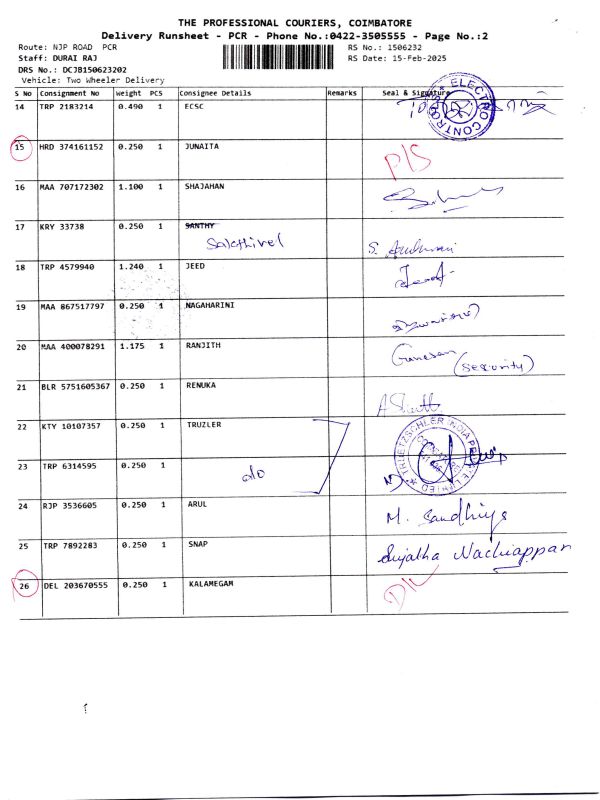 THE PROFESSIONAL COURIERS, COIMBATORE
Delivery Runsheet - PCR - Phone No.:0422-3505555 - Page No.:2
Route: NJP ROAD PCR
RS No.: 1506232
Staff: DURAI RAJ
RS Date: 15-Feb-2025
DRS No.: DCJB150623202
Vehicle: Two Wheeler Delivery
S No Consignment No Weight PCS Consignee Details Remarks Seal & Signature
14 TRP 2183214 0.490 1 ECSC
ELECTRO CONTROLS
15 HRD 374161152 0.250 1 JUNAITA P/S
16 MAA 707172302 1.100 1 SHAJAHAN
17 KRY 33738 0.250 1 SANTHY
Sakthivel
18 TRP 4579940 1.240 1 JEED
19 MAA 867517797 0.250 1 NAGAHARINI
20 MAA 400078291 1.175 1 RANJITH Ganesan (Security)
21 BLR 5751605367 0.250 1 RENUKA
22 KTY 10107357 0.250 1 TRUZLER
TRUETZSCHLER INDIA PRIVATE LIMITED
23 TRP 6314595 0.250 1 do
24 RJP 3536605 0.250 1 ARUL M. Sandhiya
25 TRP 7892283 0.250 1 SNAP Sujatha Nachiappan
26 DEL 203670555 0.250 1 KALAMEGAM D/L